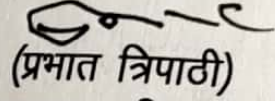 (प्रभात त्रिपाठी)